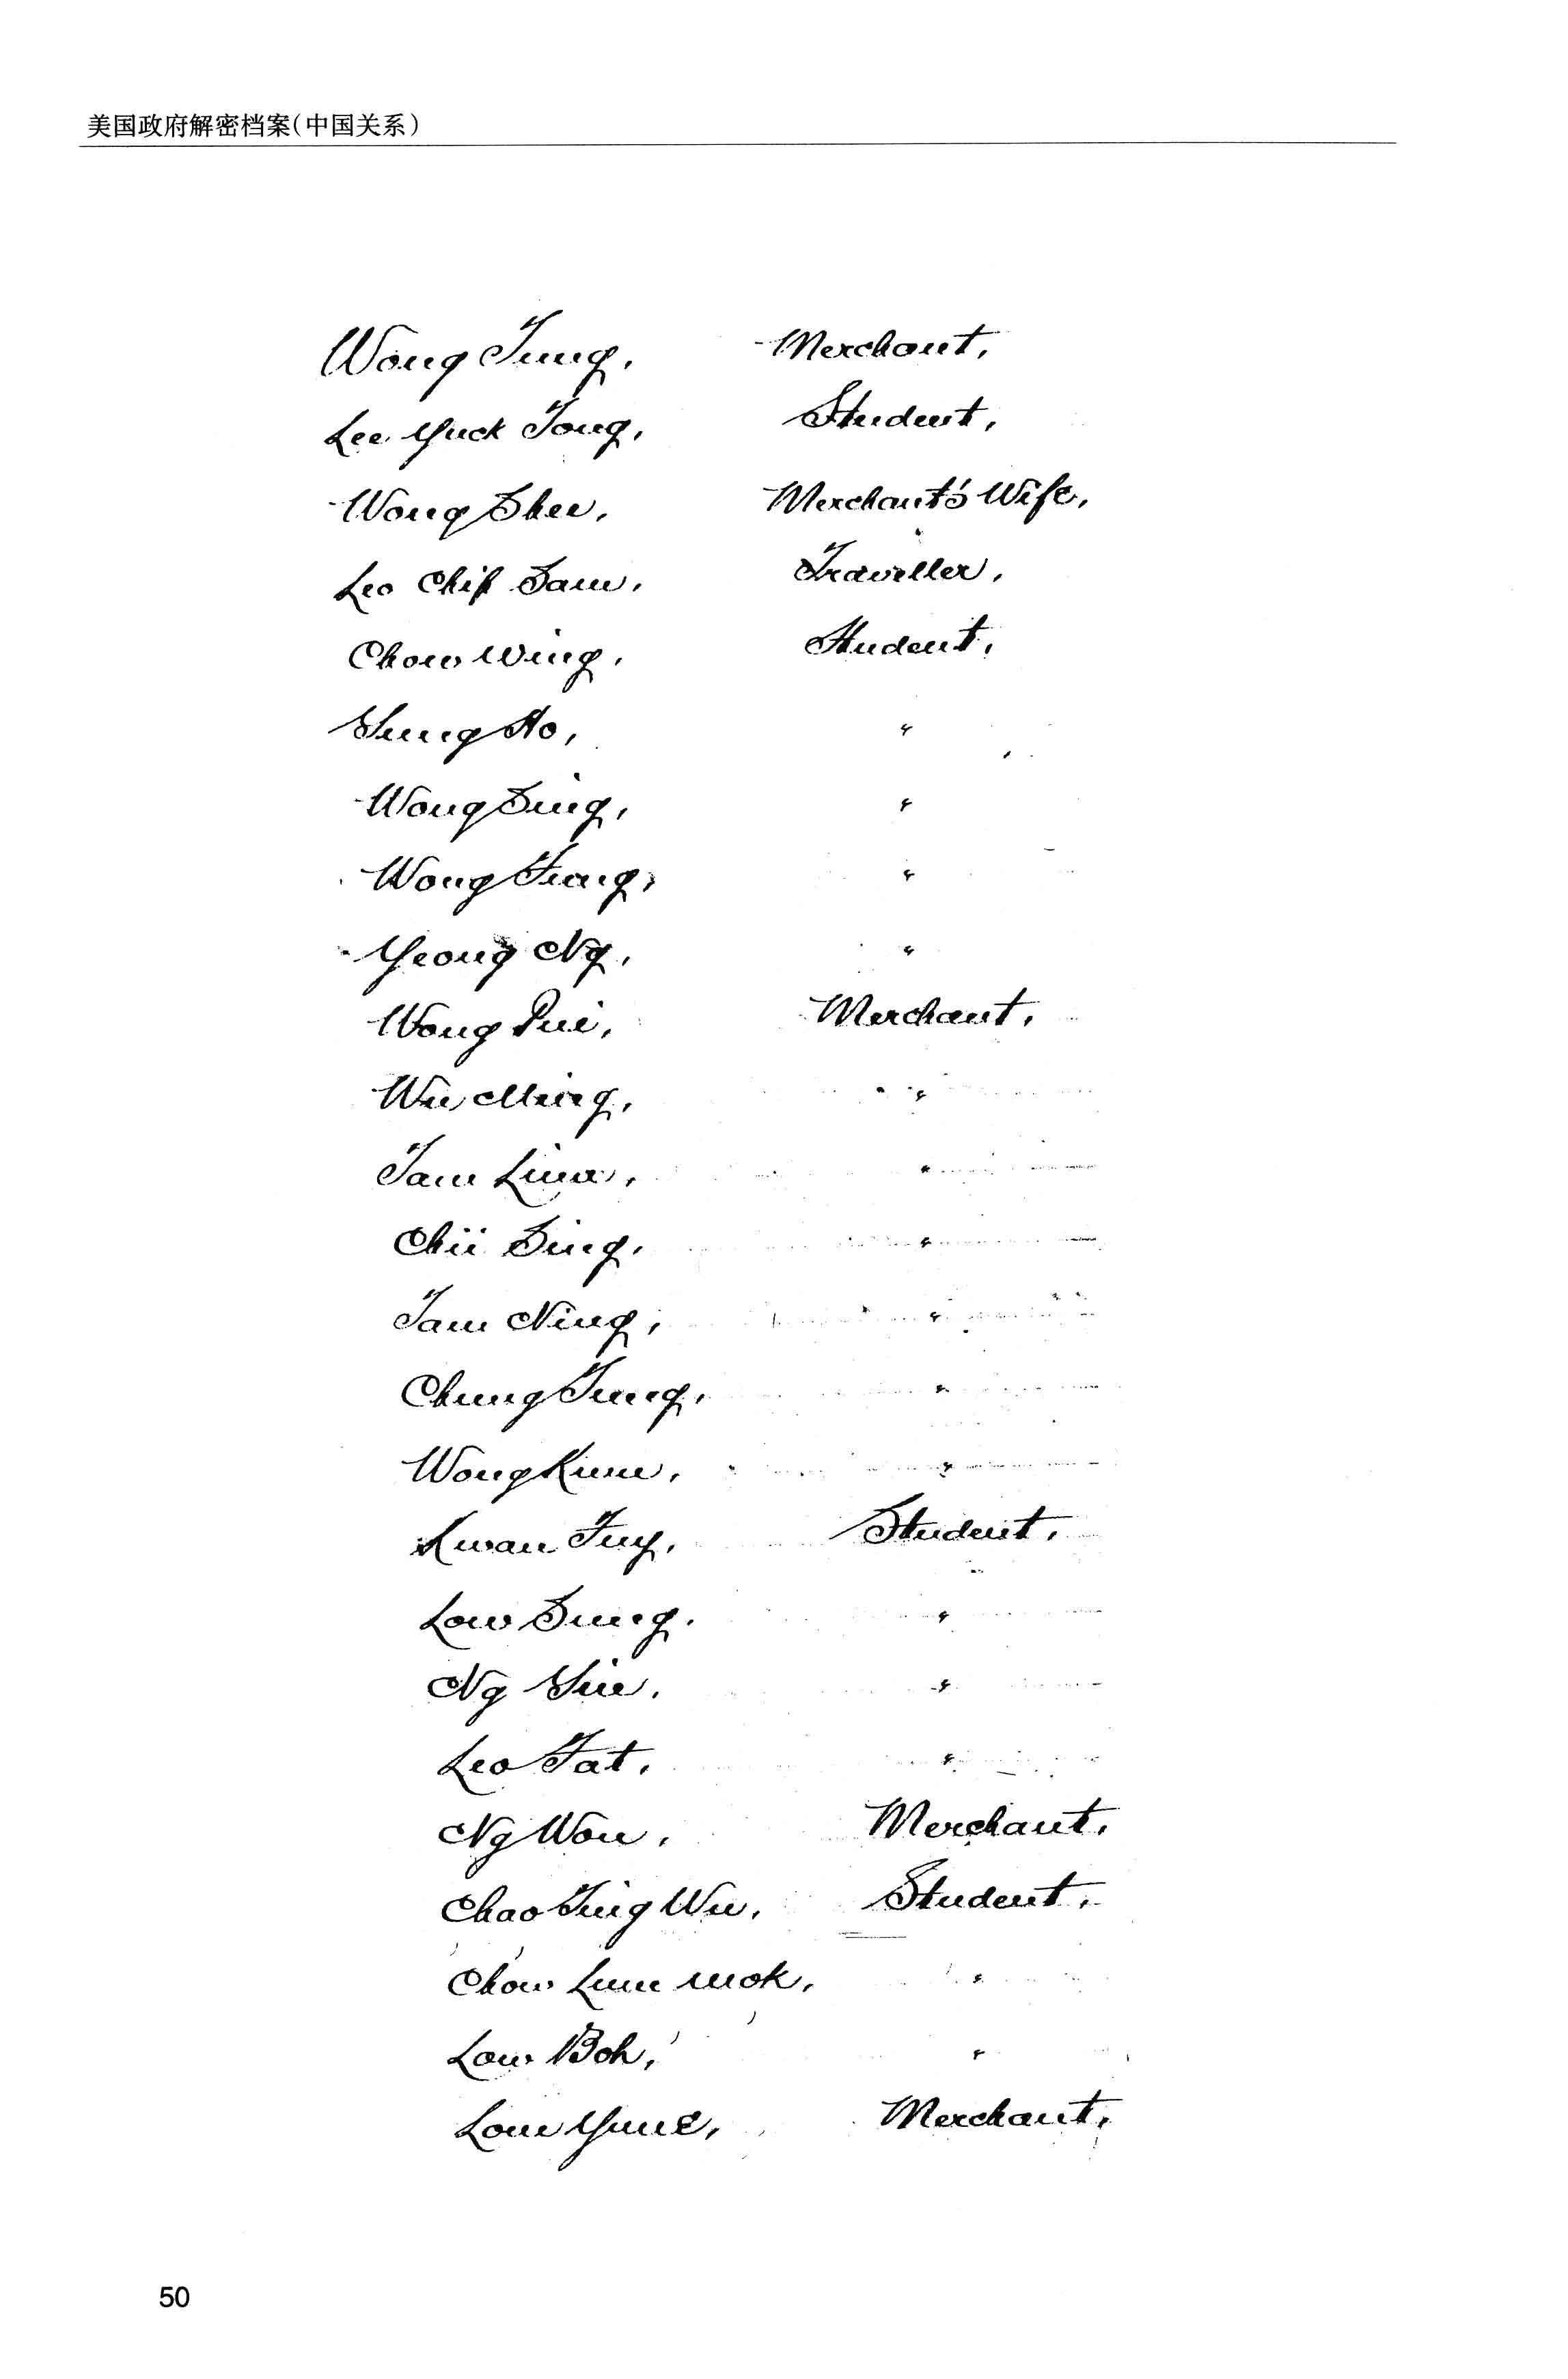 美国政府解密档案(中国关系)
Wong Tung, Merchant,
Lee Yuck Tong, Student,
Wong Shee, Merchant's Wife,
Leo Chip Sam, Traveller,
Chow Wing, Student,
Sung Ho, "
Wong Sing, "
Wong "
Yeong Ng, "
Wong Pui, Merchant,
Wu Ming, "
Tam "
Chii Sing, "
Tam Ning, "
Chung Tung, "
Wong Kum, "
Kwan Student,
Low Sung. "
Ng "
Leo Fat, "
Ng Won, Merchant,
Chao Ting Wu, Student,
Chow Lum mok, "
Low Boh, "
Merchant,
50